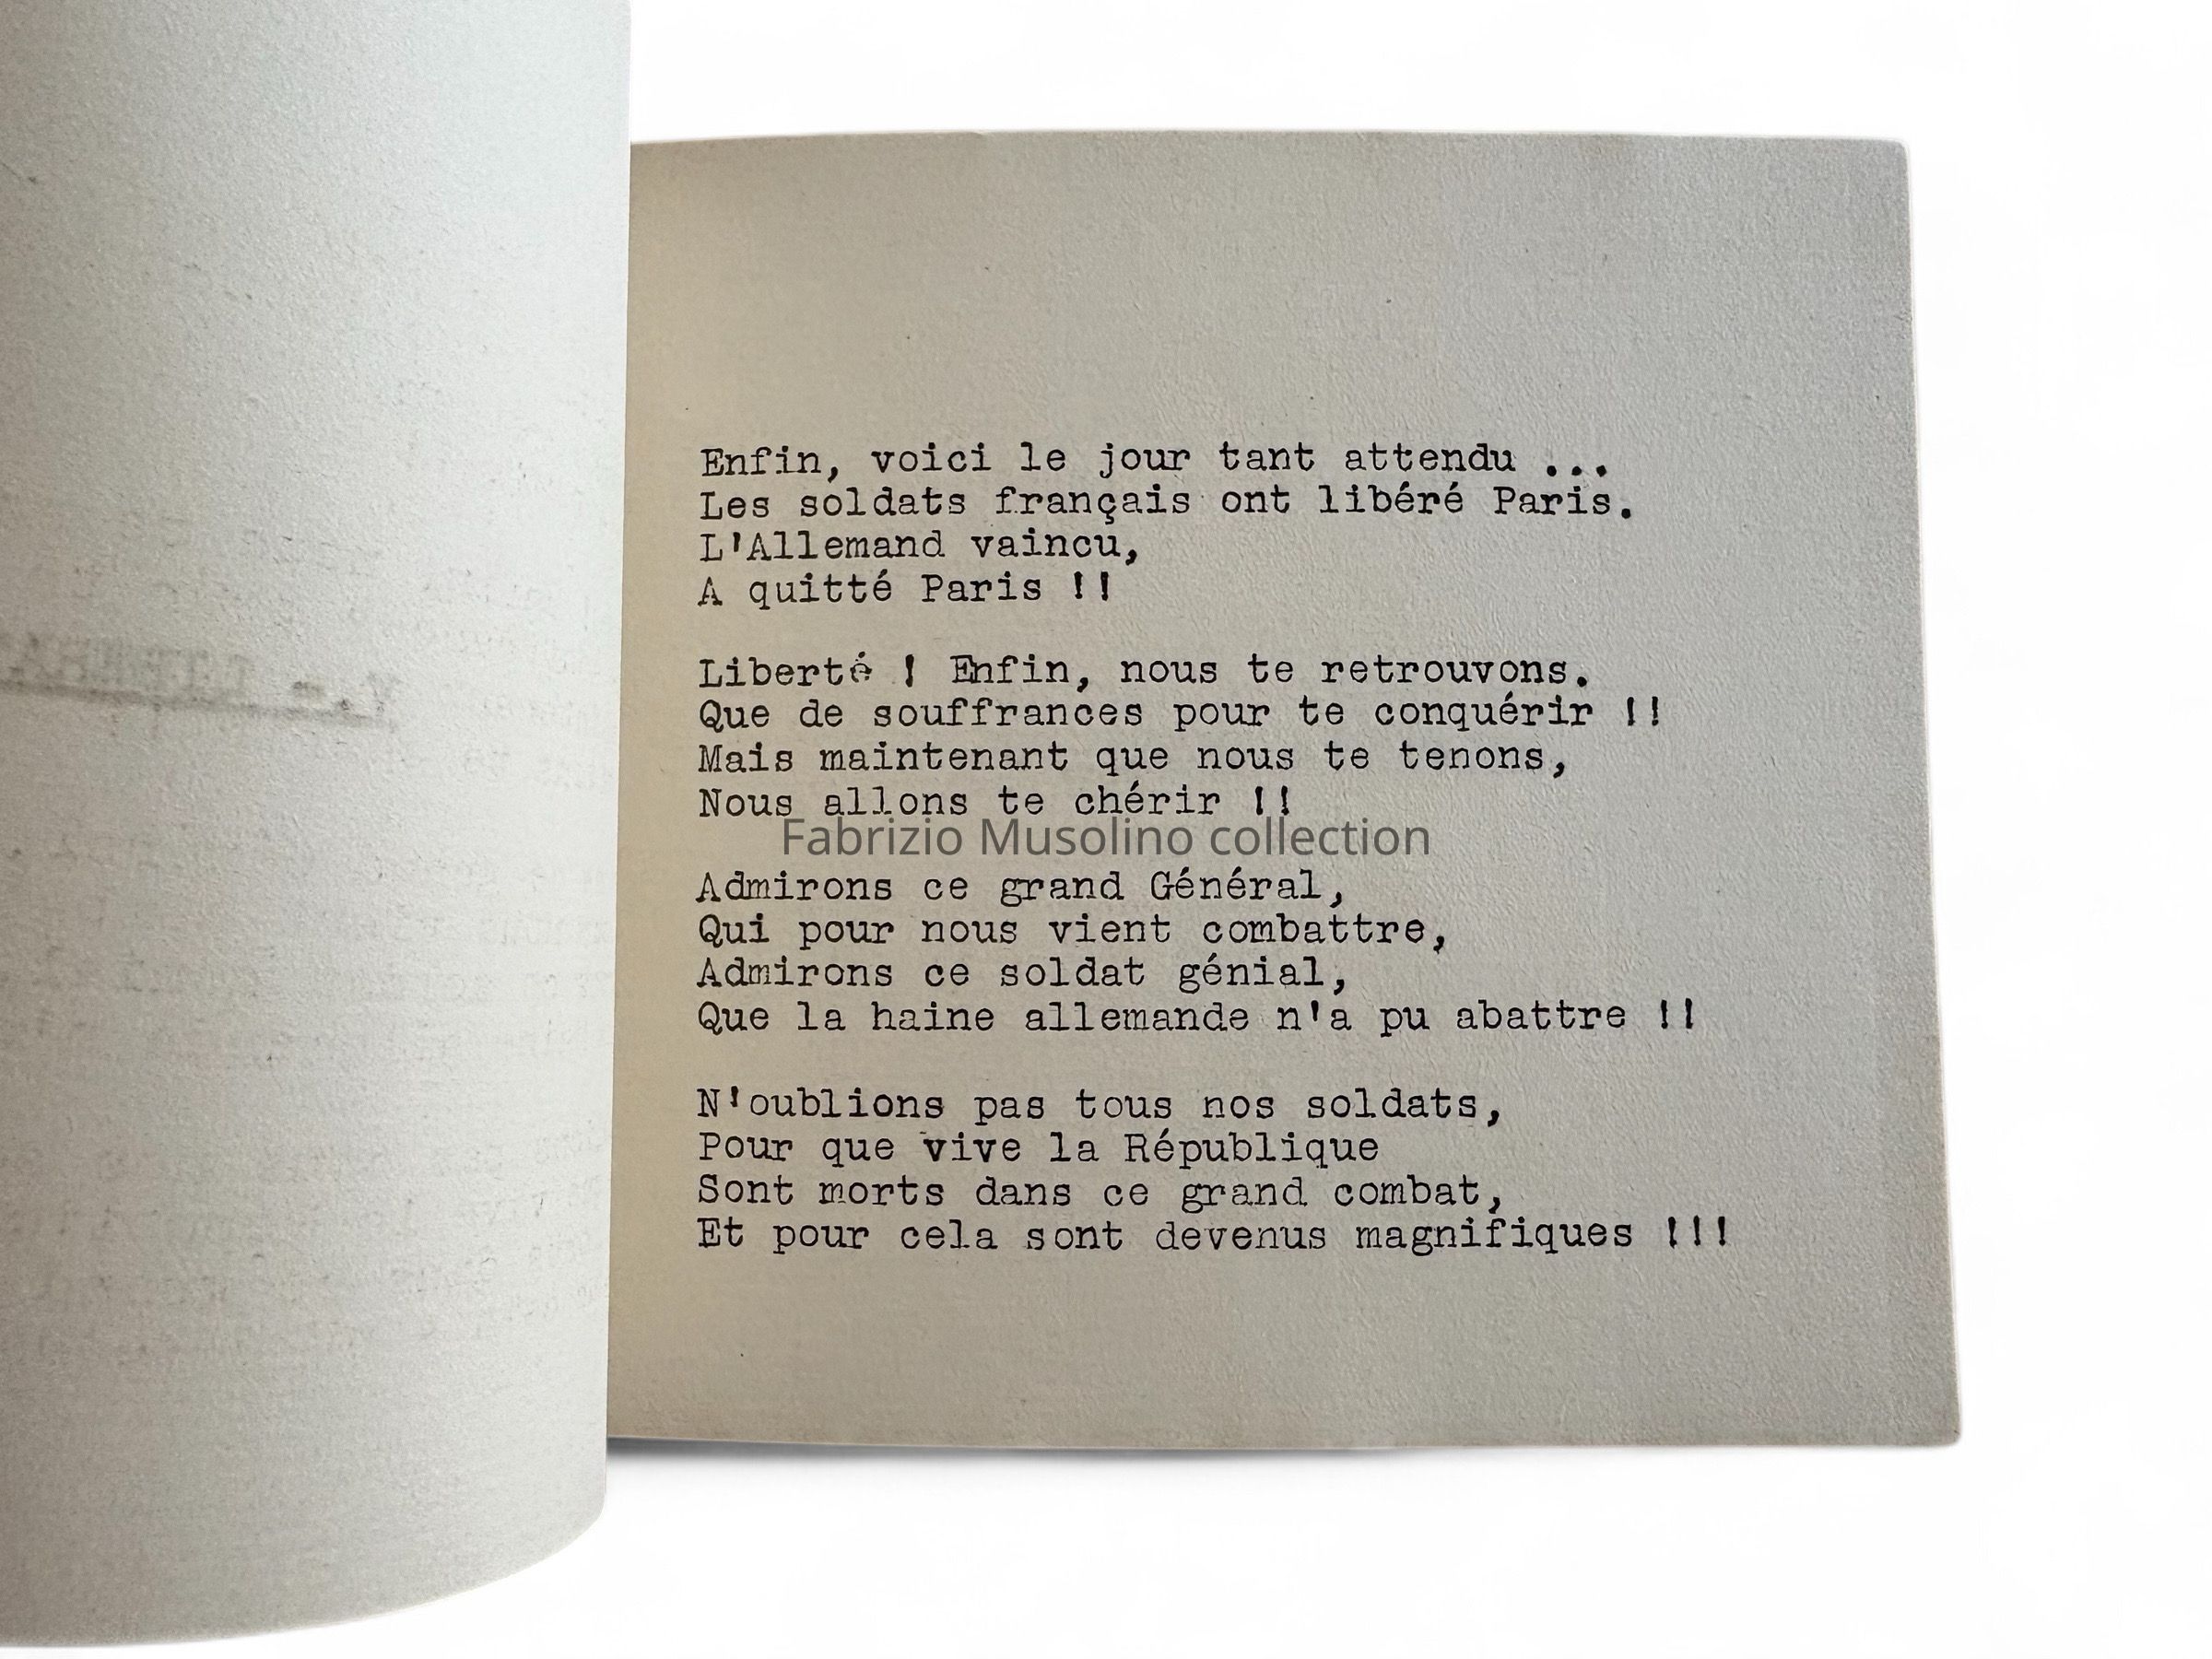 Enfin, voici le jour tant attendu ...
Les soldats français ont libéré Paris.
L'Allemand vaincu,
A quitté Paris !!
Liberté ! Enfin, nous te retrouvons.
Que de souffrances pour te conquérir !!
Mais maintenant que nous te tenons,
Nous allons te chérir !!
Fabrizio Musolino collection
Admirons ce grand Général,
Qui pour nous vient combattre,
Admirons ce soldat génial,
Que la haine allemande n'a pu abattre !!
N'oublions pas tous nos soldats,
Pour que vive la République
Sont morts dans ce grand combat,
Et pour cela sont devenus magnifiques !!!